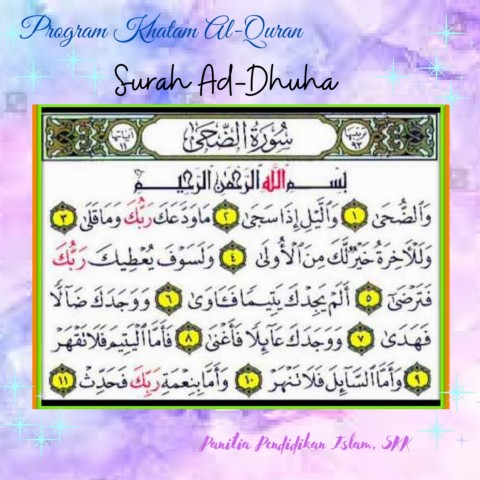 Program Khatam Al-Quran
Surah Ad-Dhuha
ترتيبها ٩٣ سُورَةُ الضُّحَىٰ آياتها ١١
بِسْمِ اللَّهِ الرَّحْمَٰنِ الرَّحِيمِ
وَالضُّحَىٰ ١ وَالَّيْلِ إِذَا سَجَىٰ ٢ مَا وَدَّعَكَ رَبُّكَ وَمَا قَلَىٰ ٣
وَلَلْآخِرَةُ خَيْرٌ لَّكَ مِنَ الْأُولَىٰ ٤ وَلَسَوْفَ يُعْطِيكَ رَبُّكَ
فَتَرْضَىٰ ٥ أَلَمْ يَجِدْكَ يَتِيمًا فَـَٔاوَىٰ ٦ وَوَجَدَكَ ضَآلًّا
فَهَدَىٰ ٧ وَوَجَدَكَ عَآئِلًا فَأَغْنَىٰ ٨ فَأَمَّا الْيَتِيمَ فَلَا تَقْهَرْ
٩ وَأَمَّا السَّآئِلَ فَلَا تَنْهَرْ ١٠ وَأَمَّا بِنِعْمَةِ رَبِّكَ فَحَدِّثْ ١١
Panitia Pendidikan Islam, SKK